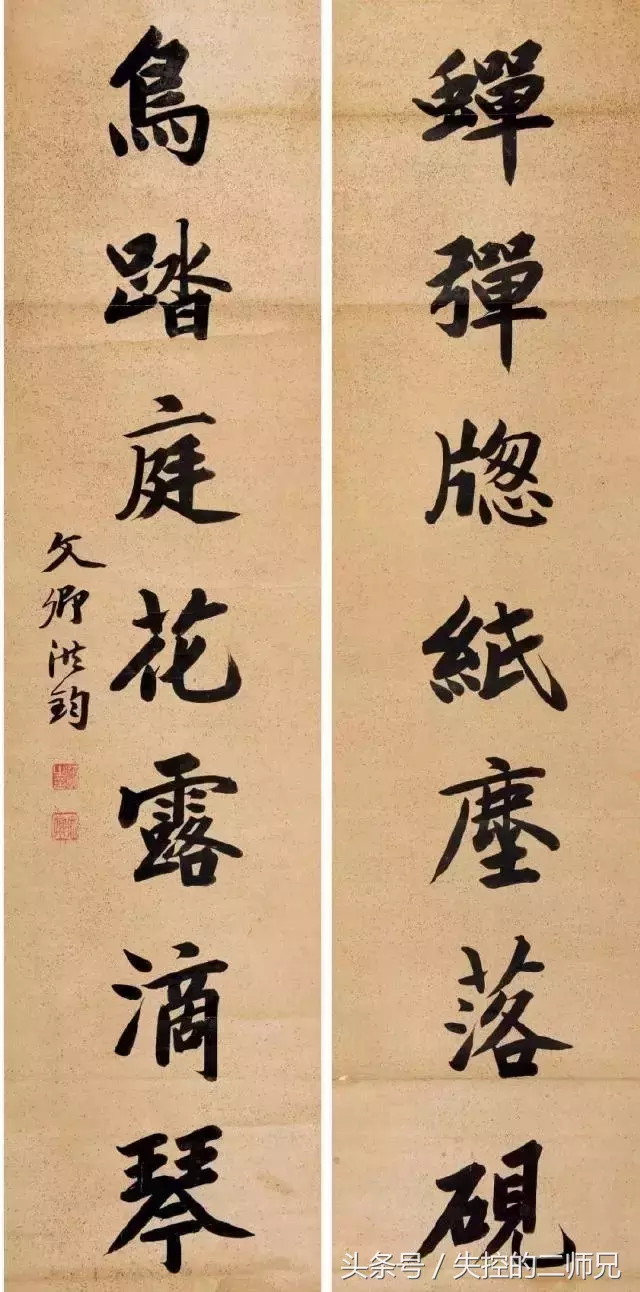 蟬彈牕紙塵落硯
鳥踏庭花露滴琴
文卿洪鈞
头条号 / 失控的二师兄